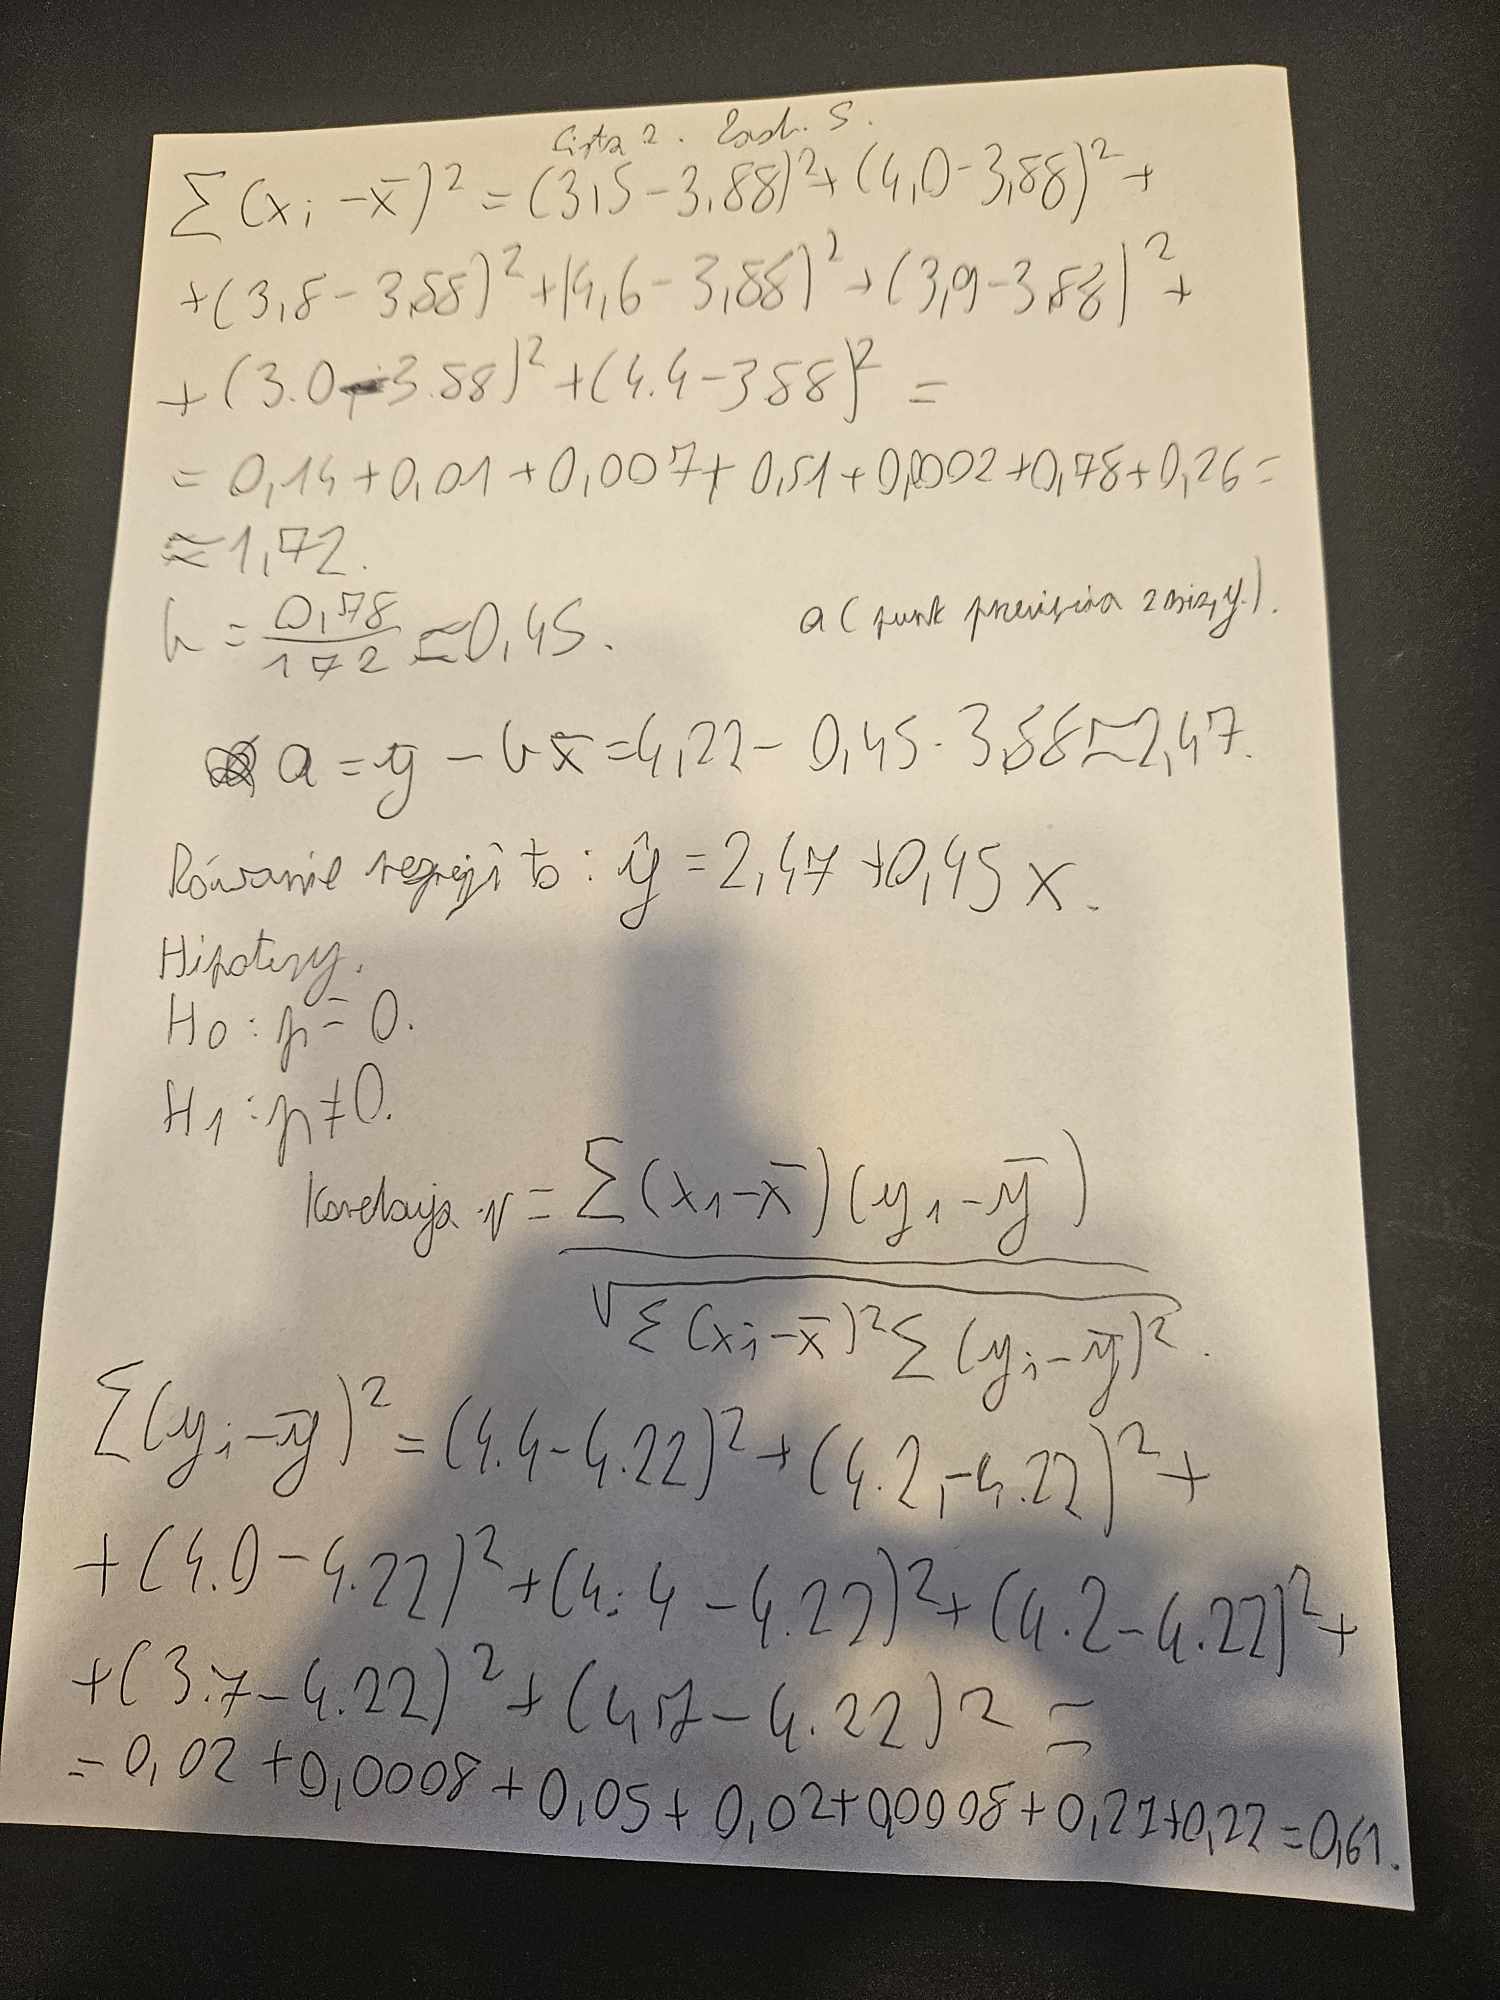 Lista 2. Zad. 5.
∑(xi – x̄)² = (3,5 – 3,88)² + (4,0 – 3,88)² +
+ (3,8 – 3,88)² + (4,6 – 3,88)² + (3,9 – 3,88)² +
+ (3.0 – 3.88)² + (4.4 – 3 88)² =
= 0,14 + 0,01 + 0,007 + 0,51 + 0,0002 + 0,78 + 0,26 =
≈ 1,72.
b = 0,78 / 172 ≈ 0,45.
a (punk przecięcia z osią y.).
a = y – bx̄ = 4,22 – 0,45 · 3,88 ≈ 2,47.
Równanie regresji to: ŷ = 2,47 + 0,45 x.
Hipotezy.
H0 : p = 0.
H1 : p ≠ 0.
Korelacja r = ∑(x1 – x̄)(y1 – ȳ) / √∑(xi – x̄)² ∑(yi – ȳ)².
∑(yi – ȳ)² = (4.4 – 4.22)² + (4.2 – 4.22)² +
+ (4.0 – 4.22)² + (4.4 – 4.22)² + (4.2 – 4.22)² +
+ (3.7 – 4.22)² + (4,7 – 4.22)² =
= 0,02 + 0,0008 + 0,05 + 0,02 + 0,0008 + 0,27 + 0,22 = 0,61.